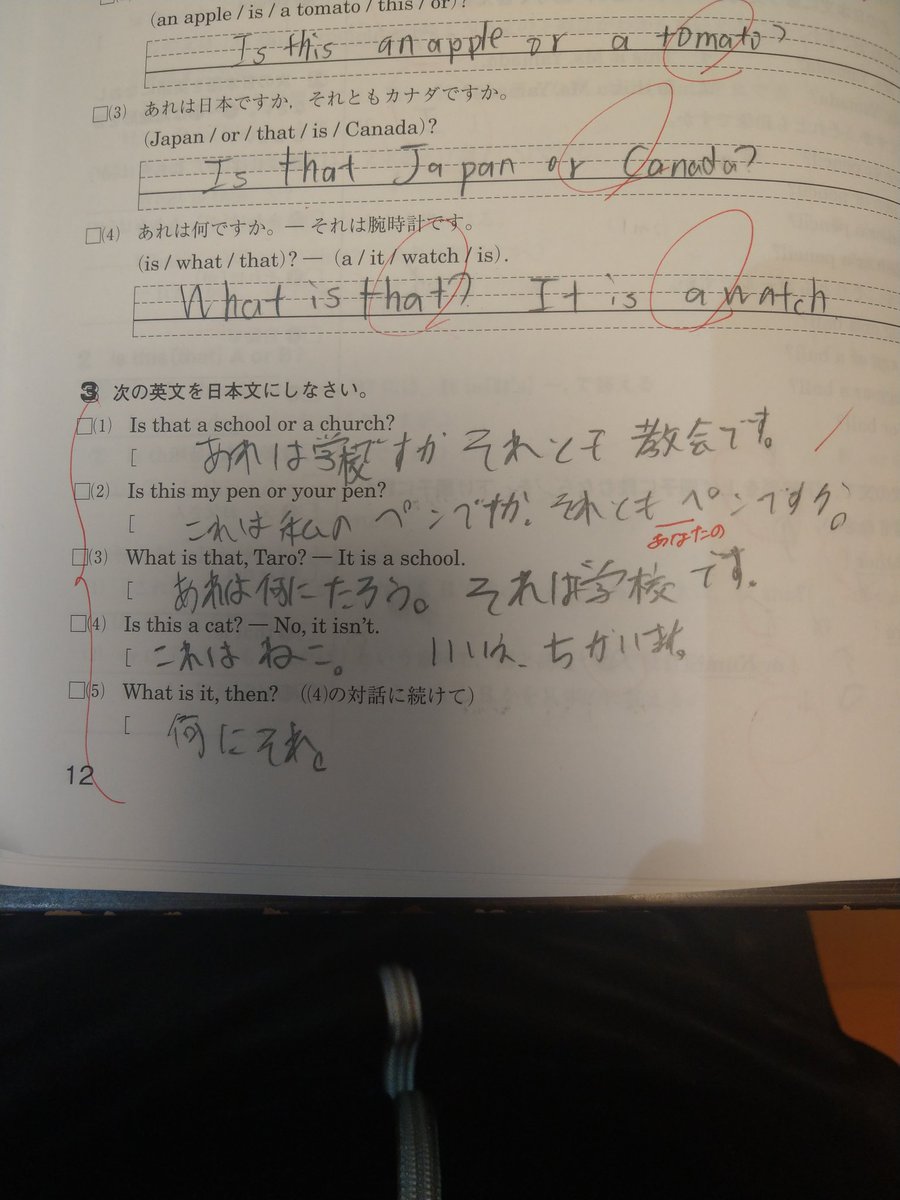 (an apple / is / a tomato / this / or)?
Is this an apple or a tomato?
□(3) あれは日本ですか，それともカナダですか。
(Japan / or / that / is / Canada)?
Is that Japan or Canada?
□(4) あれは何ですか。― それは腕時計です。
(is / what / that)? ― (a / it / watch / is).
What is that? It is a watch
3 次の英文を日本文にしなさい。
□(1) Is that a school or a church?
[ あれは学校ですか それとも 教会です。
□(2) Is this my pen or your pen?
[ これは私の ペンですか. それとも ペンですか。
あなたの
□(3) What is that, Taro? ― It is a school.
[ あれは何にたろう。 それは学校です。
□(4) Is this a cat? ― No, it isn't.
[ これは ねこ。 いいえ、ちがいます。
□(5) What is it, then? ((4)の対話に続けて)
[ 何にそれ。
12